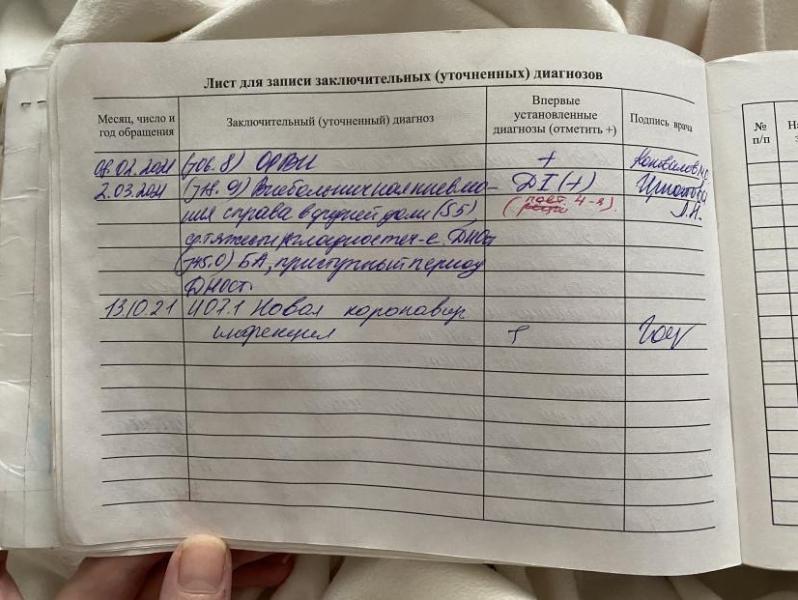 Лист для записи заключительных (уточненных) диагнозов
Месяц, число и год обращения
Заключительный (уточненный) диагноз
Впервые установленные диагнозы (отметить +)
Подпись врача
№ п/п
(J06.8) ОРВИ +
2.03.2021 (J18.9) Внебольничная пневмо- DI (+)
ния справа в средней доли (S5) ( 4-я).
ср. тяжести, гладкое теч-е. ДN0ст
(J45.0) БА, приступный период Л.Н.
ДN0ст.
13.10.21 U07.1 Новая коронавир
инфекция +